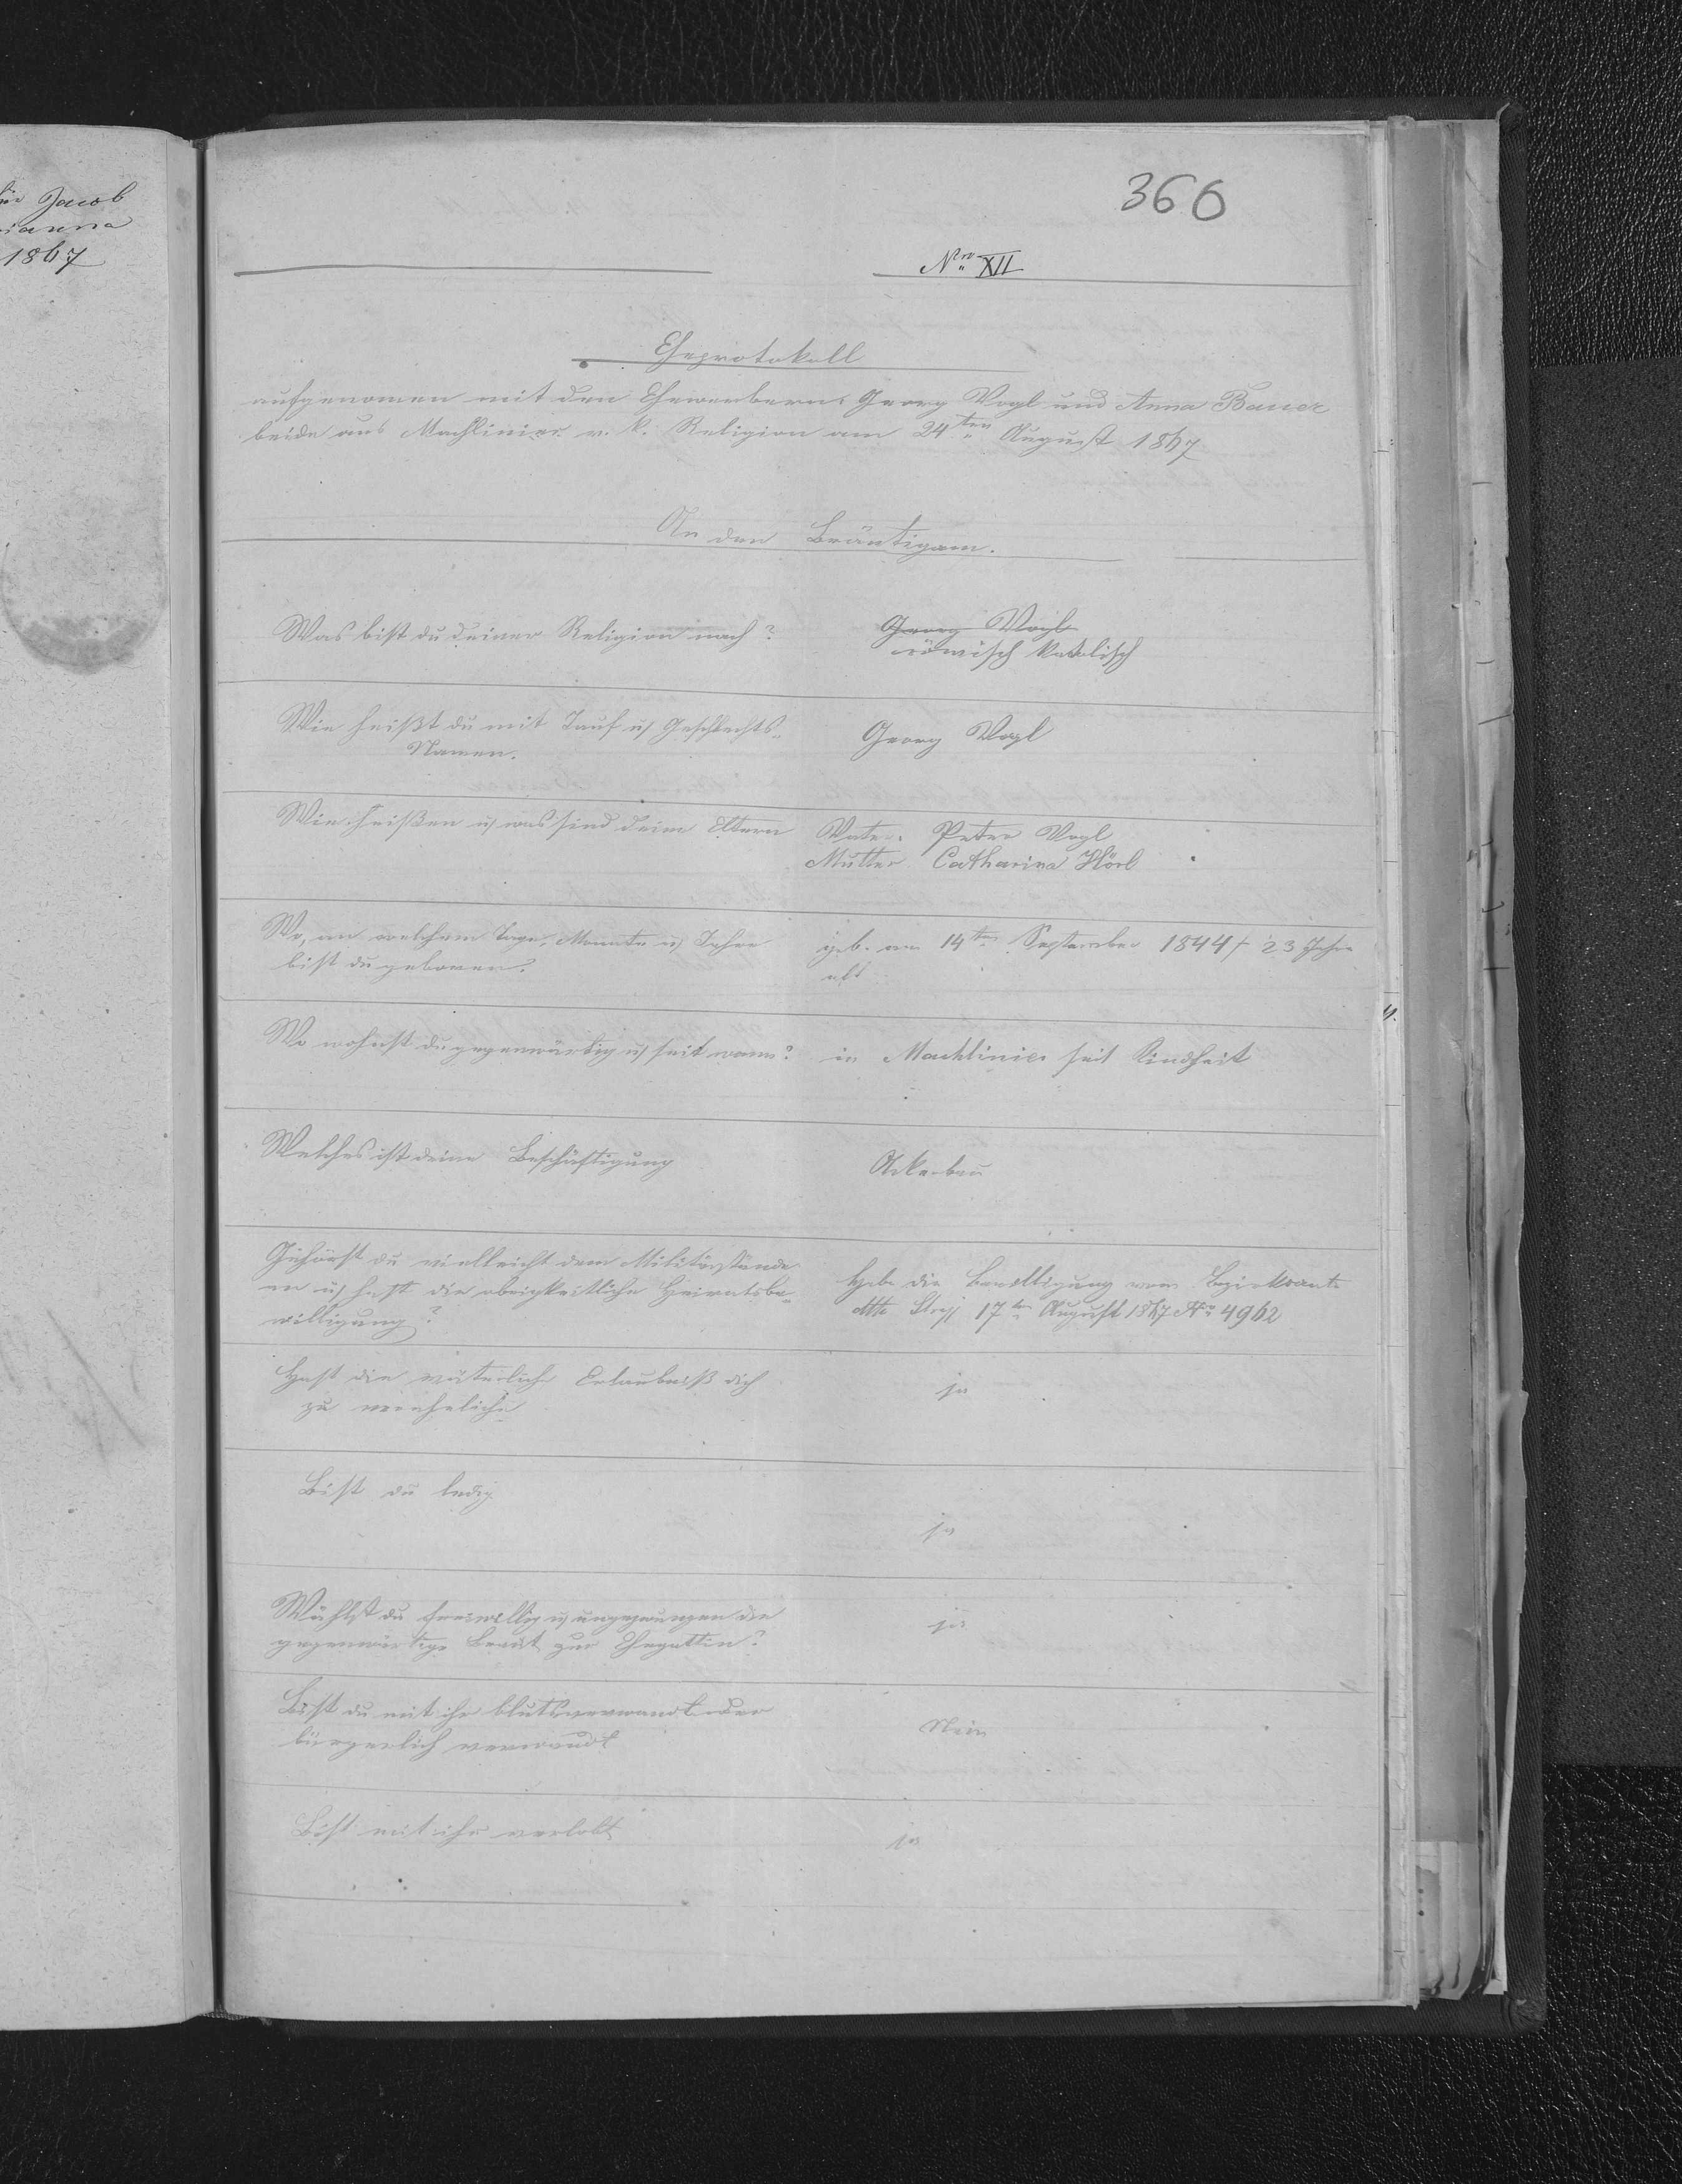 Jacob
1867
366
Nro XII
Eheprotokoll
aufgenomen mit den Ehewerbern: Georg Vogl und Anna Bauer
beide aus Machliniec r. k. Religion am 24ten August 1867
An den Bräutigam.
Was bist du deiner Religion nach? Georg Vogl
römisch katolisch
Wie heißt du mit Tauf u/ Geschlechts- Georg Vogl
Namen.
Wie heißen u/ was sind deine Eltern Vater: Peter Vogl
Mutter Catharina Hörl
Wo, an welchem Tage, Monate u/ Jahre geb. am 14ten September 1844 / 23 Jahre
bist du geboren? alt
Wo wohnst du gegenwärtig u/ seit wann? in Machliniec seit Kindheit
Welches ist deine Beschäftigung Ackerbau
Gehörst du vielleicht dem Militärstande Habe die Bewilligung vom Bezirksamte
an u/ hast die obrigkeitliche Heiratsbe- dtto Stryj 17ten August 1867 No 4962
willigung?
Hast die väterliche Erlaubniß dich ja
zu verehelichen
Bist du ledig
ja
Wählst du freiwillig u/ ungezwungen die ja
gegenwärtige Braut zur Ehegattin?
Bist du mit ihr blutsverwandt oder Nein
bürgerlich verwandt
Bist mit ihr verlobt ja